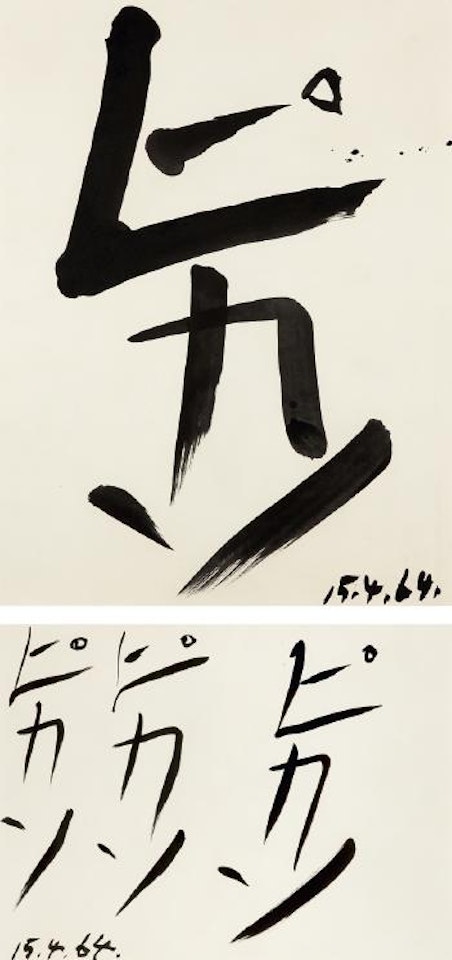 ピカソ
15.4.64.
ピカソ
ピカソ
ピカソ
15.4.64.